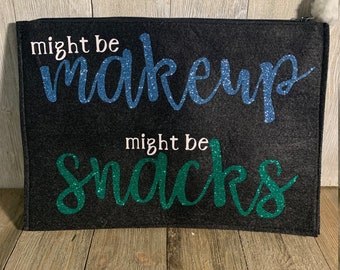 might be
makeup
might be
snacks